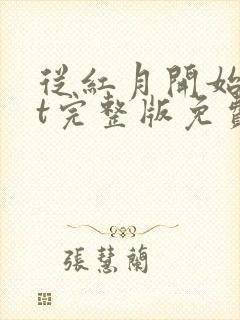 從紅月開始
t完整版免費
張慧蘭